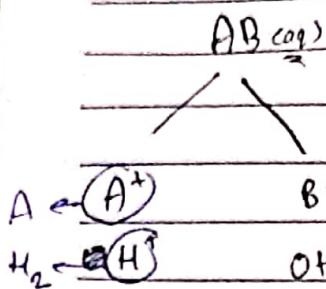 AB (aq)
A ← A+ B
H2 ← H+ OH